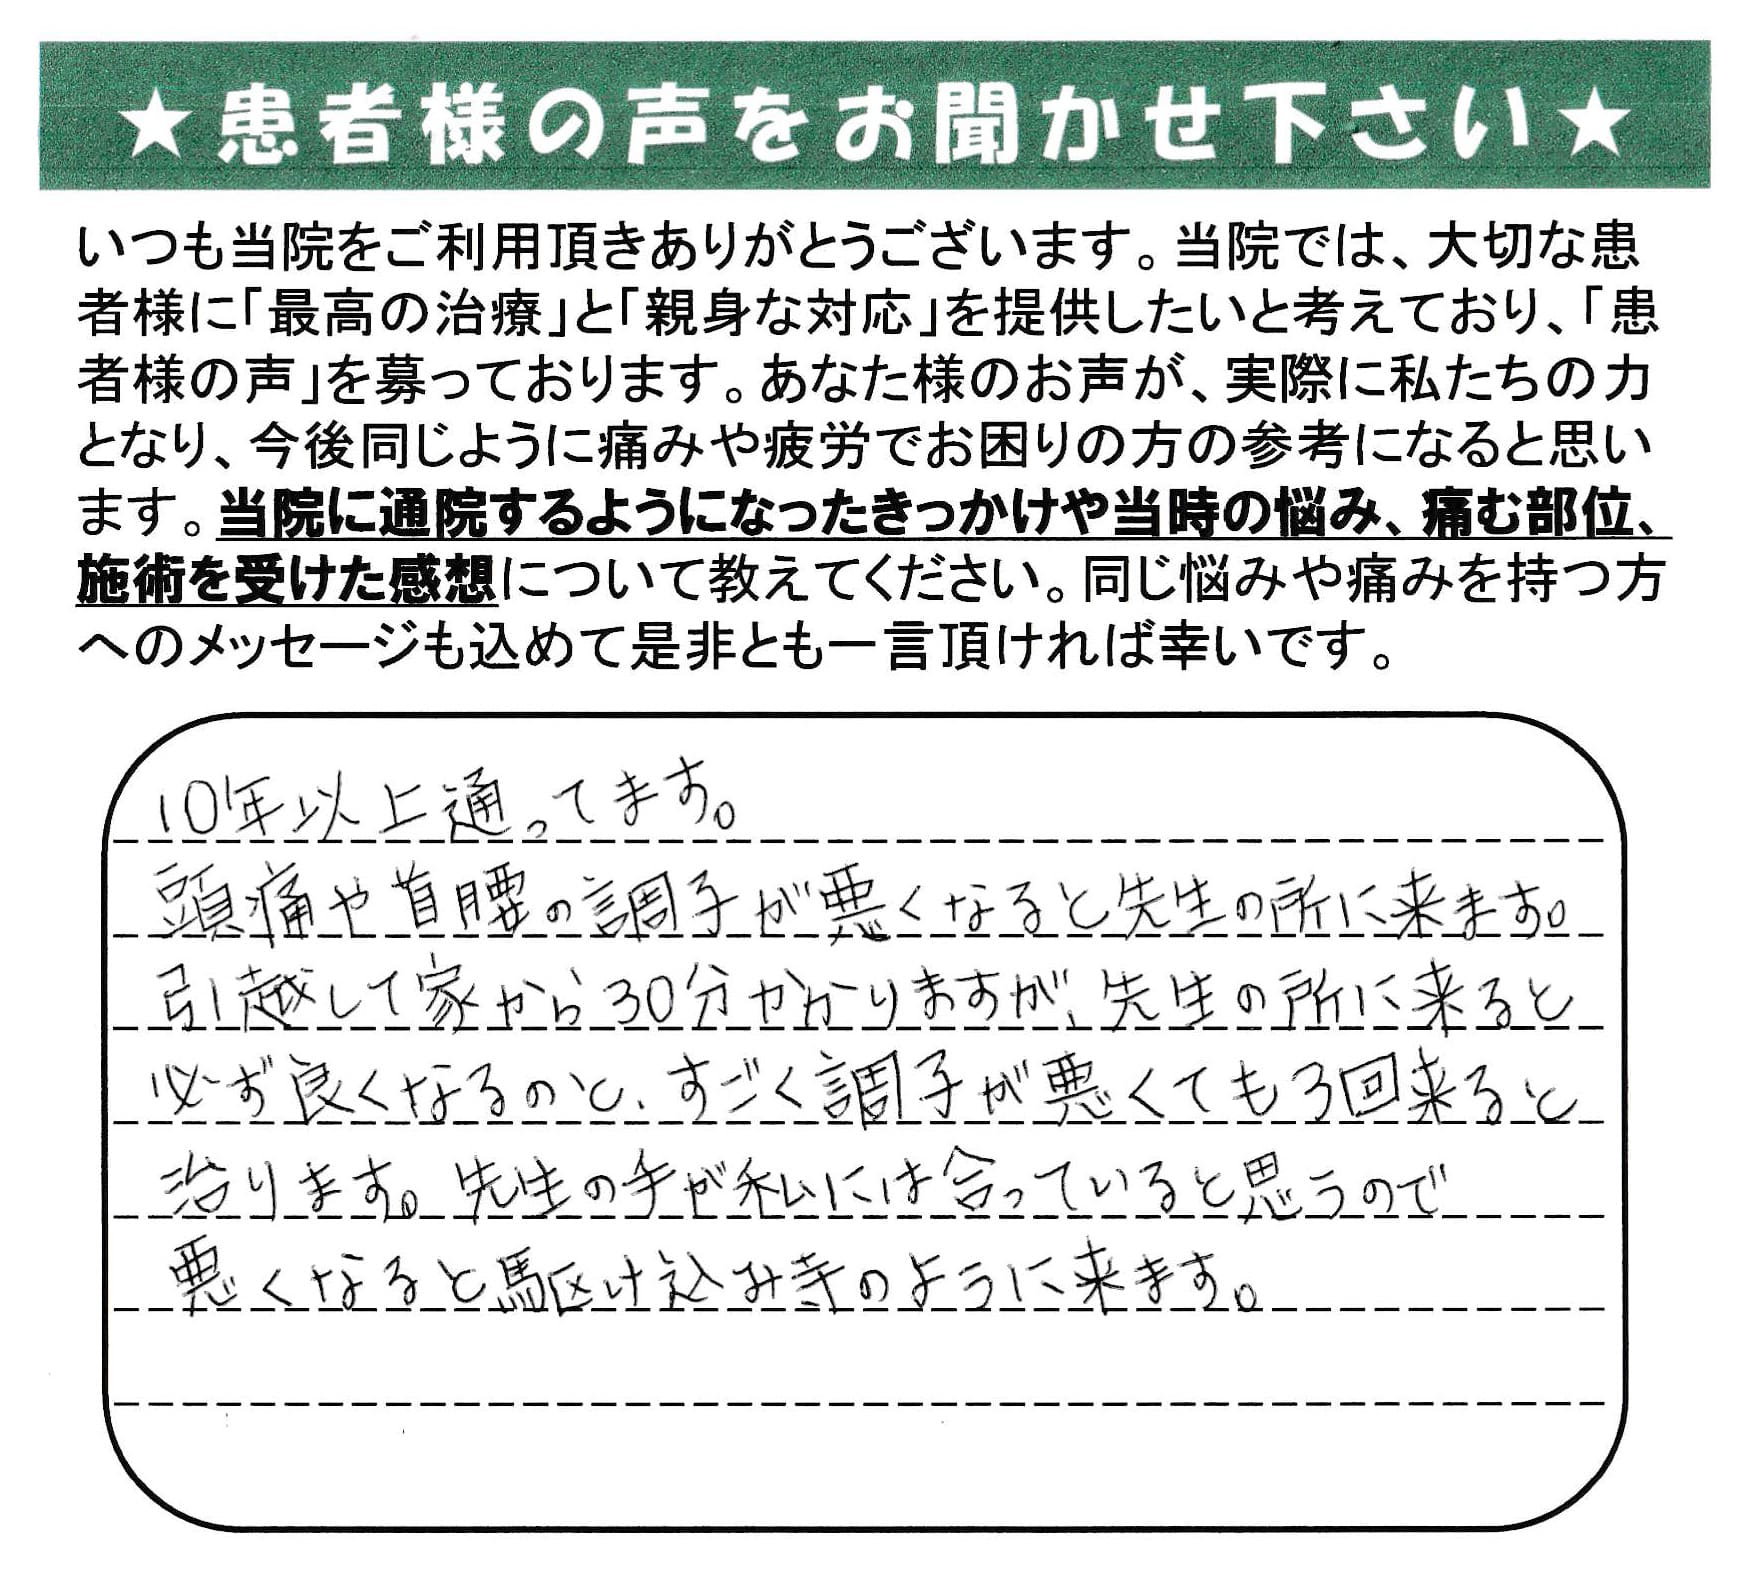 ★患者様の声をお聞かせ下さい★
いつも当院をご利用頂きありがとうございます。当院では、大切な患
者様に「最高の治療」と「親身な対応」を提供したいと考えており、「患
者様の声」を募っております。あなた様のお声が、実際に私たちの力
となり、今後同じように痛みや疲労でお困りの方の参考になると思い
ます。当院に通院するようになったきっかけや当時の悩み、痛む部位、
施術を受けた感想について教えてください。同じ悩みや痛みを持つ方
へのメッセージも込めて是非とも一言頂ければ幸いです。
10年以上通ってます。
頭痛や首腰の調子が悪くなると先生の所に来ます。
引越して家から30分かかりますが、先生の所に来ると
必ず良くなるのと、すごく調子が悪くても3回来ると
治ります。先生の手が私には合っていると思うので
悪くなると駆け込み寺のように来ます。